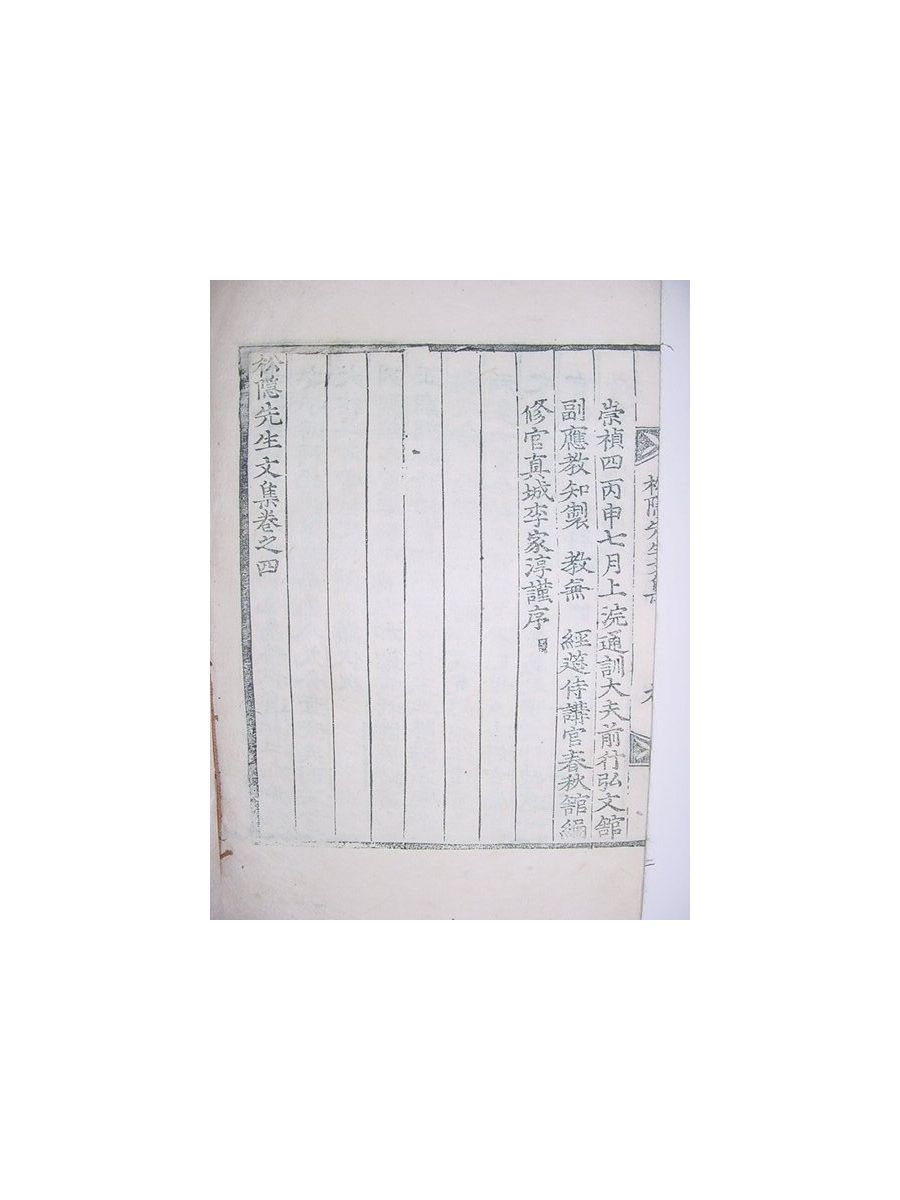 松隱先生文集
崇禎四丙申七月上浣通訓大夫前行弘文舘
副應教知製　教兼　經筵侍講官春秋舘編
修官真城李家淳謹序
松隱先生文集卷之四